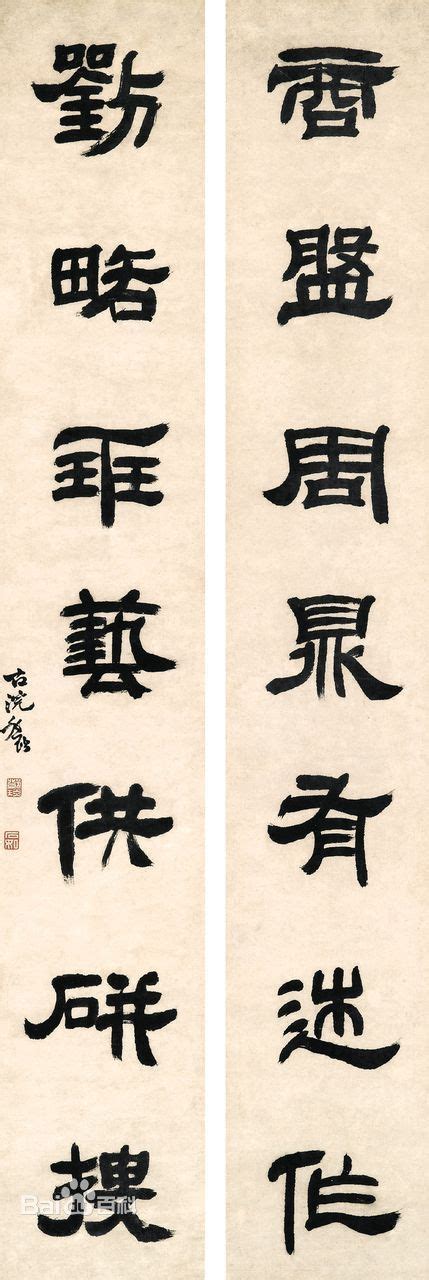 商盤周鼎有述作
劉略班藝供研搜
古浣
Bai百科